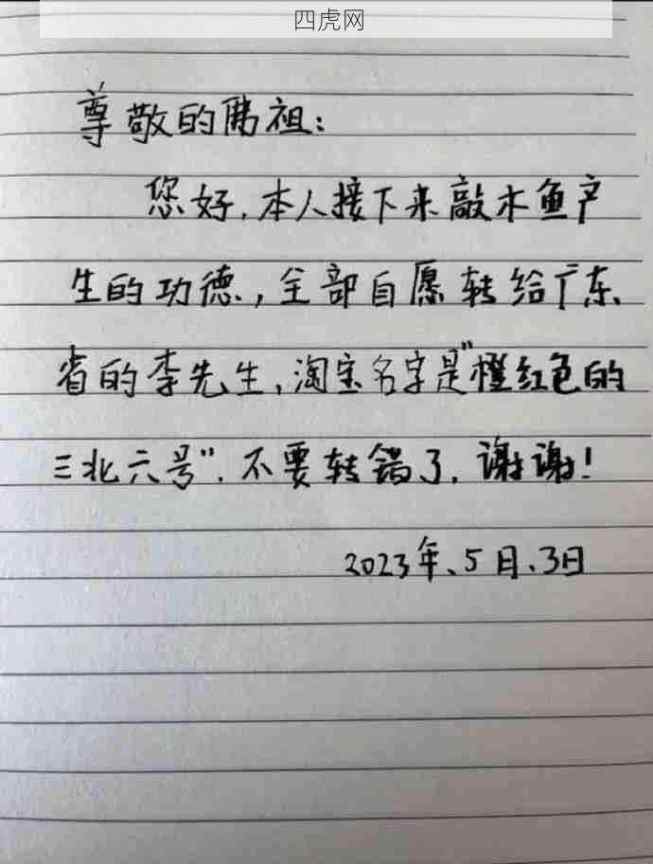 四虎网
尊敬的佛祖:
您好,本人接下来敲木鱼产
生的功德,全部自愿转给广东
省的李先生,淘宝名字是"橙红色的
三北六号",不要转错了,谢谢!
2023年、5月、3日